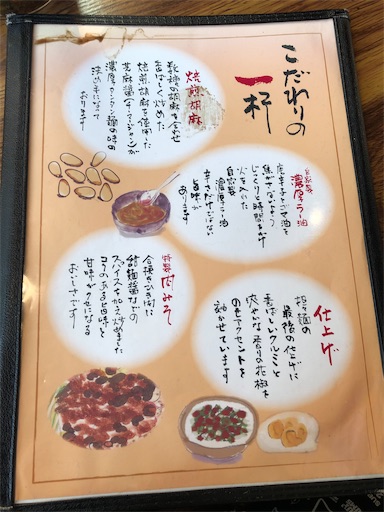 こだわりの
一杯
焙煎胡麻
数種の胡麻を合わせ
香ばしく炒めた
焙煎胡麻を使用した
芝麻醤(チーマージャン)が
濃厚タンタン麺の味の
決め手になって
おります
自家製
濃厚ラー油
唐辛子とゴマ油を
焦がさないよう
じっくりと時間をかけ
火を入れた
自家製
濃厚ラー油
辛さだけではない
旨味が
あります
特製
肉みそ
合挽のひき肉に
甜麺醤などの
スパイスを加え炒めました
コクのある旨味と
甘味がクセになる
おいしさです
仕上げ
担々麺の
最後の仕上げに
香ばしいクルミと
爽やかな香りの花椒を
のせアクセントを
効かせています